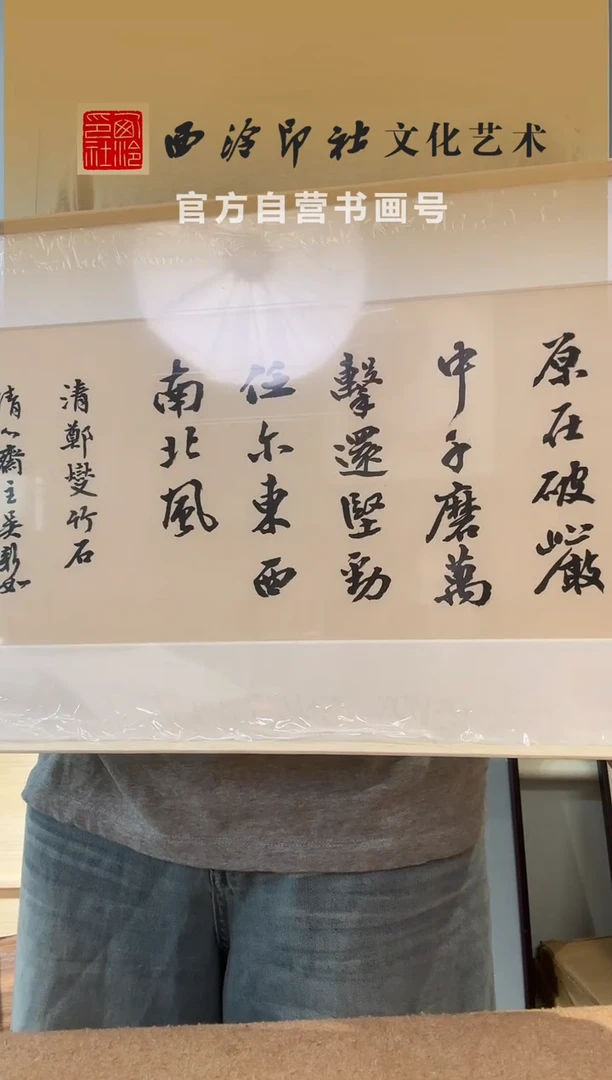 西泠印社
西泠印社文化艺术
官方自营书画号
原在破巖
中千磨萬
擊還堅勁
任尔東西
南北風
清鄭燮竹石
清心齋主吴